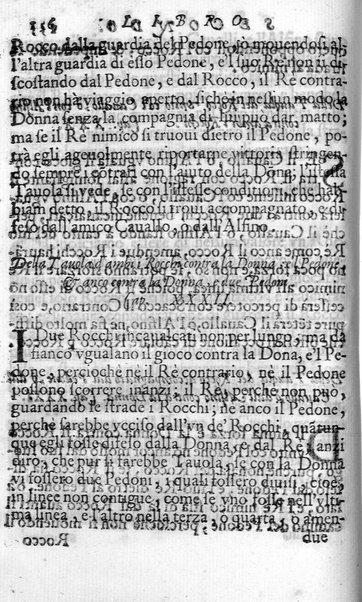 L I B R O
Rocco dalla guardia del Pedone, io mouendosi al
l'altra guardia di esso Pedone, e'l suo Re non si di
scostando dal Pedone, e dal Rocco, il Re contra-
rio non ha viaggio aperto, si che in nessun modo la
Donna senza la compagnia di può dar matto;
ma se il Re nimico si truoui dietro il Pedone, po-
trà egli ageuolmente riportarne vittoria stringen-
do sempre i cótrari con l'aiuto della Dóna; l'istessa
Tauola si vede, se con l'istesse conditioni, che hab-
biam detto, il Rocco si troui accompagnato, e di-
feso dall'amico Cauallo, o dall'Alfino.
Della Tauola di ambi i Rocchi contra la Donna, e'l Pedone
& anco contra la Donna, e due Pedoni.
Cap. XXXII.
I Due Rocchi incaualcati non per lungo, ma da
fianco vgualano il gioco contra la Dona, e'l Pe-
done, percioche nè il Re contrario, nè il Pedone
possono correre inanzi; il Re, perche non può,
guardando le strade i Rocchi; nè anco il Pedone,
perche sarebbe vcciso dall'vn de' Rocchi, quatun-
que egli fosse difeso dalla Donna, e dal Re, anzi
dirò, che pur si farebbe Tauola, se con la Donna
vi fossero due Pedoni, i quali fossero diuisi, cioè,
in linee non contigue, come se vno fosse nell'vlti-
ma linea, e l'altro nella terza, o quarta, o amen-
due